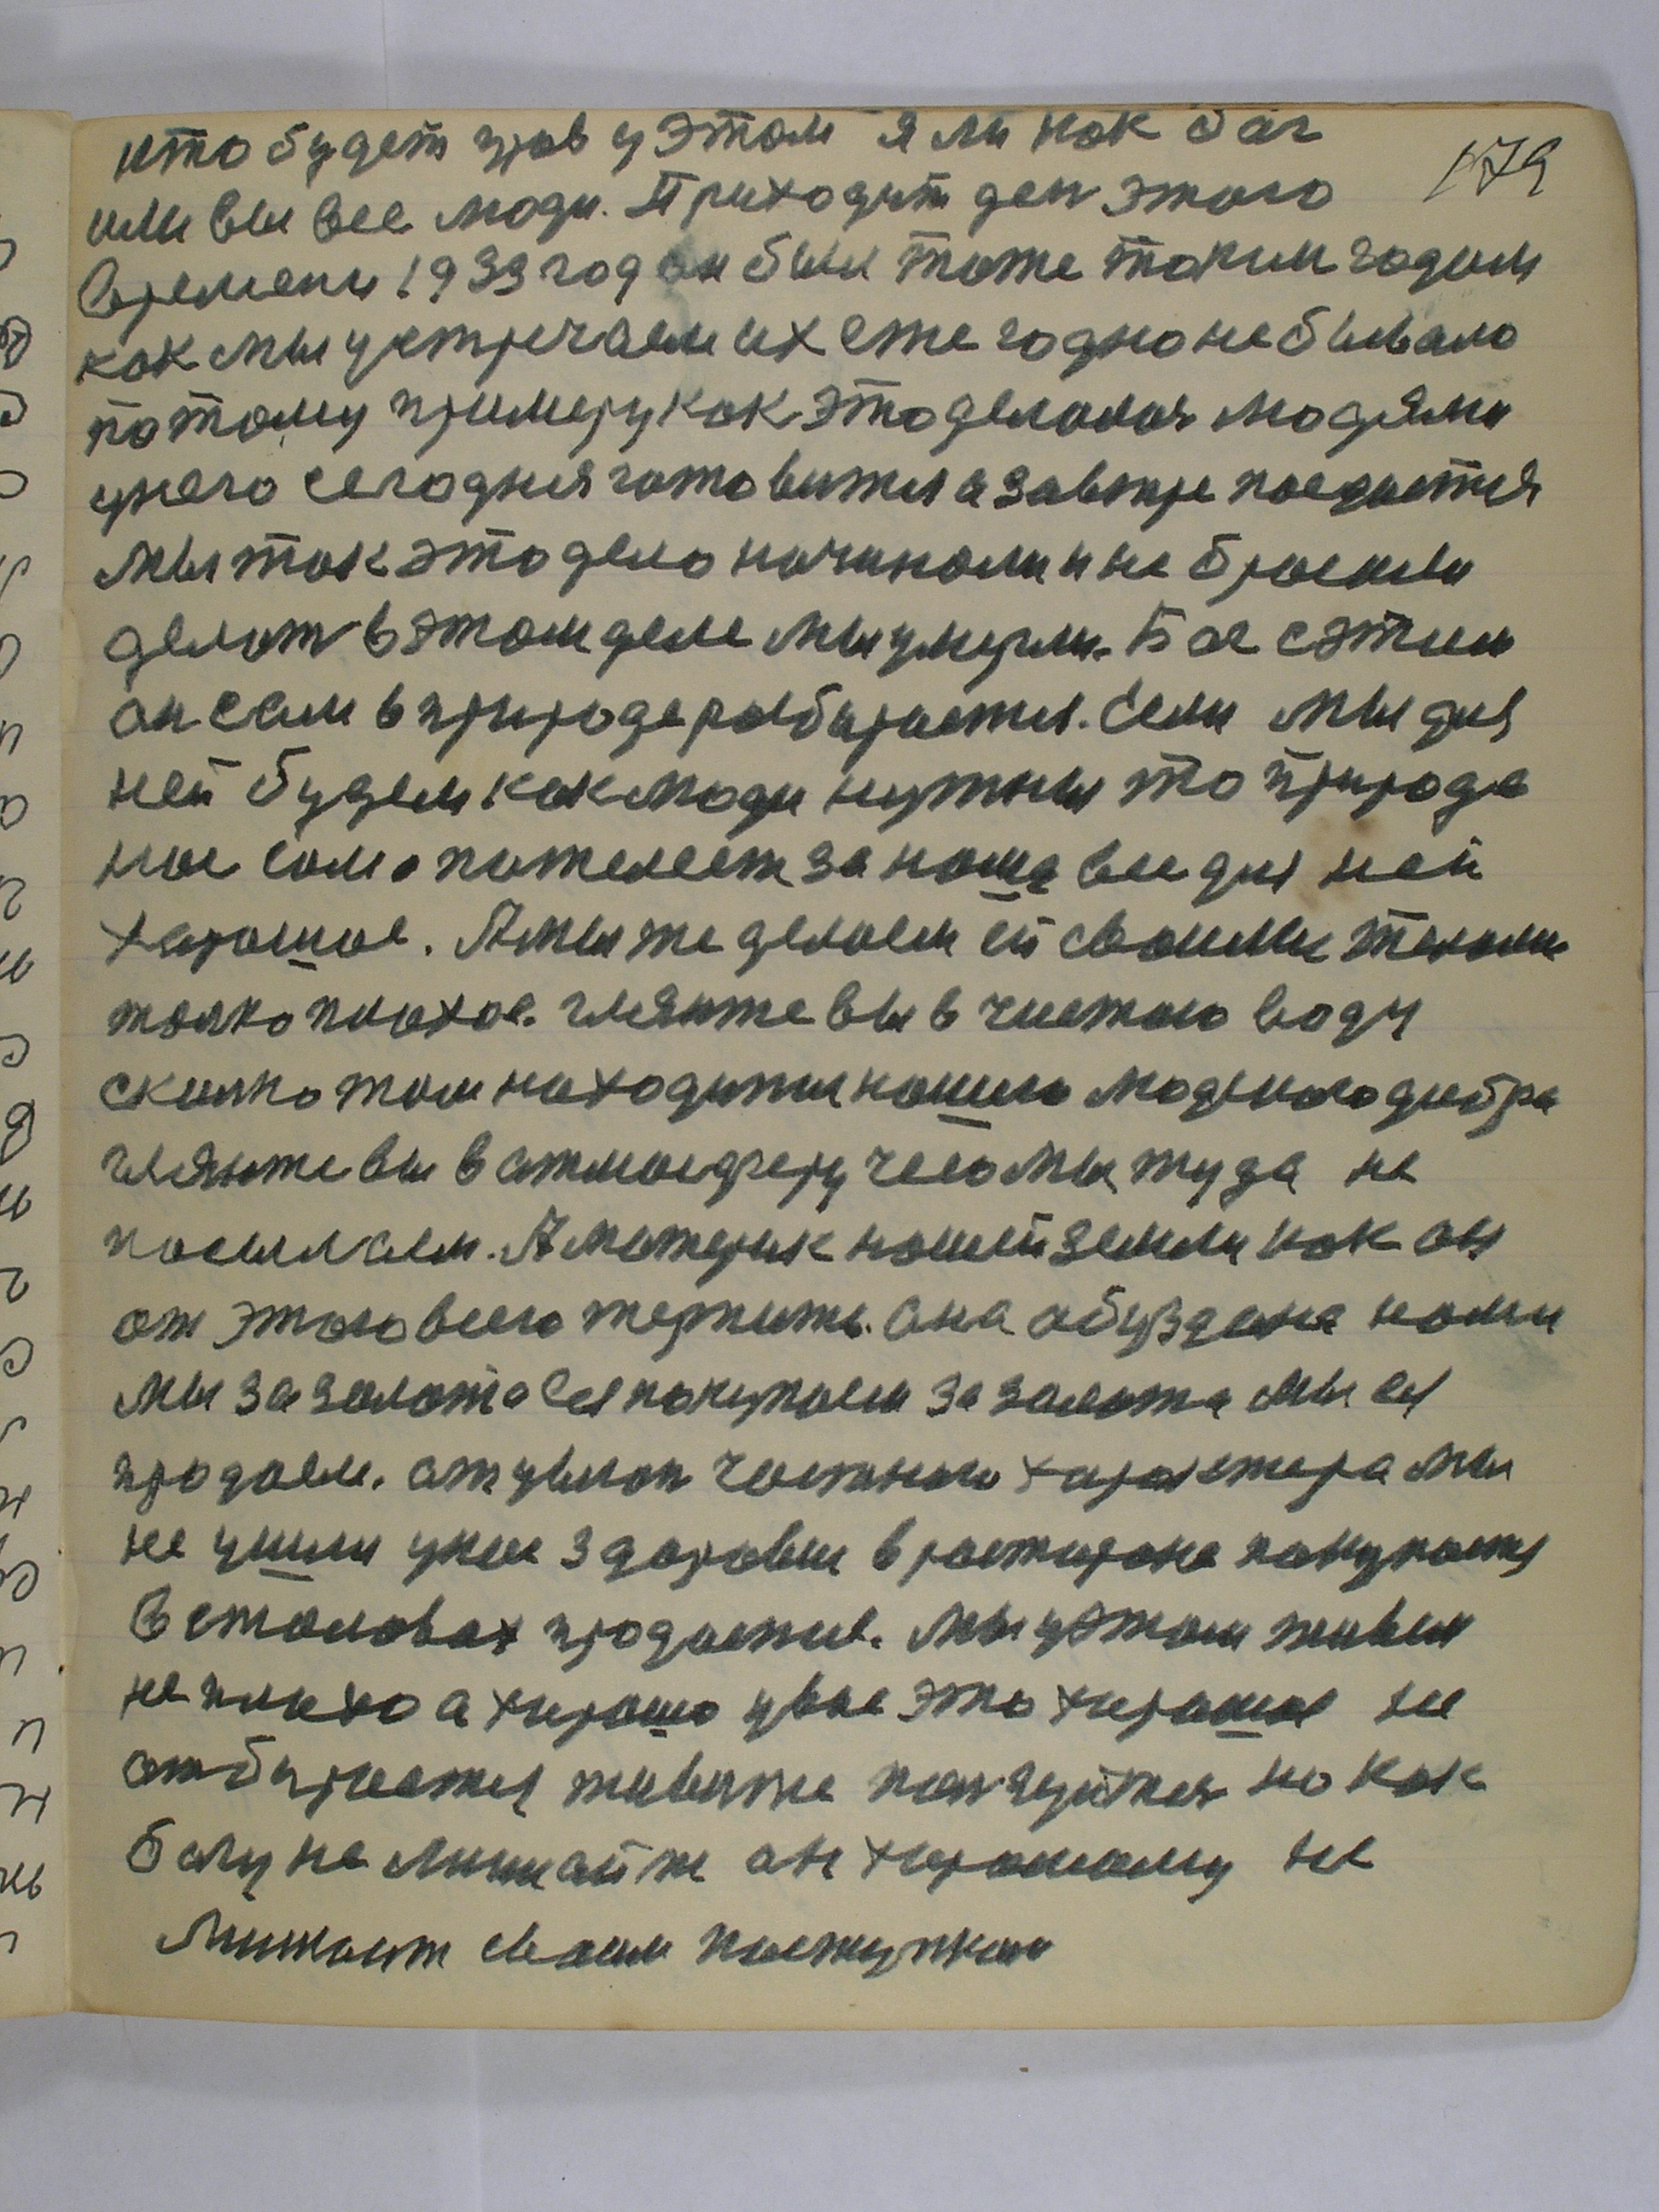 кто будет прав у этом я ли как Бог
179
или вы все люди. Приходит ден этого
времени 1933 год он был тоже таким годом
как мы устречаем их ежегодно не бывало
потому примеру как это делалося людями
у него сегодня готовится а завтре поедается
мы так это дело начинали и не бросили
делат в этом деле мы умерли. Бог с этим
он сам в природе розбирается. Если мы для
ней будем как люди нужны то природа
нас сама пожелеет за наша все для ней
харошое. А мы же делаем ей своими телами
толко плохое. гляньте вы в чистою воду
сколко там находится нашего людского добра
гляньте вы в атмосферу чего мы туда не
посылаем. А материк нашей земли как он
от этого всего терпить. она обуздана нами
мы за золото ея покупаем за золото мы ея
продаем. от условий частного характера мы
не ушли у нас здоровье в ресторане покупается
в столовах продается. мы у этом живем
не плохо а хорошо у вас это хорошое не
отбирается живите ползуйтеся но как
Богу не мишайте он хорошому не
мишаит своим поступком